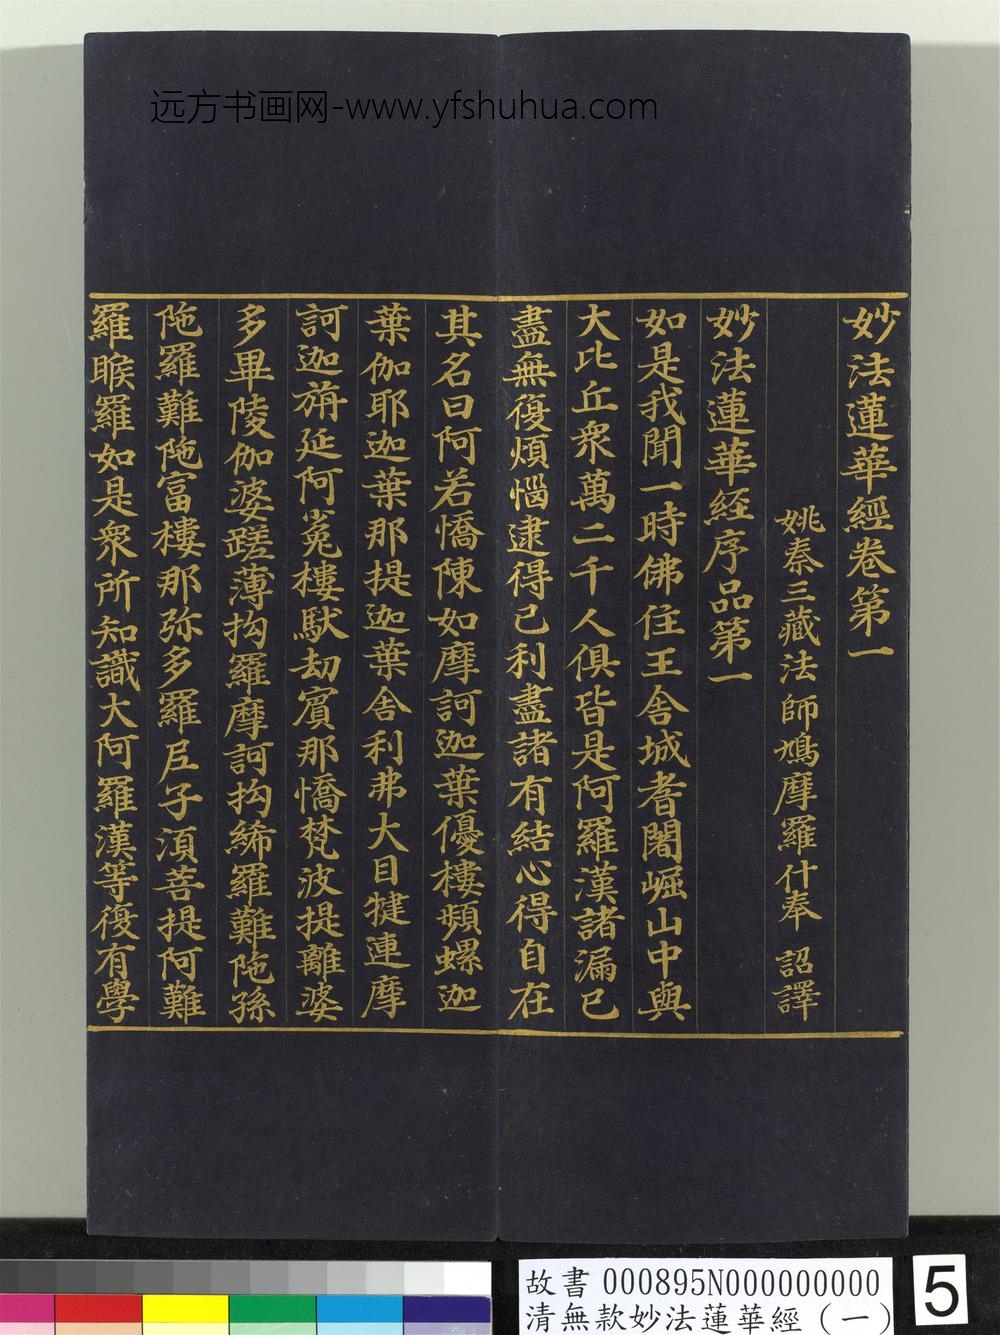 远方书画网-www.yfshuhua.com
妙法蓮華經卷第一
姚秦三藏法師鳩摩羅什奉 詔譯
妙法蓮華經序品第一
如是我聞一時佛住王舍城耆闍崛山中與
大比丘衆萬二千人俱皆是阿羅漢諸漏已
盡無復煩惱逮得己利盡諸有結心得自在
其名曰阿若憍陳如摩訶迦葉優樓頻螺迦
葉伽耶迦葉那提迦葉舍利弗大目犍連摩
訶迦旃延阿㝹樓馱劫賓那憍梵波提離婆
多畢陵伽婆蹉薄拘羅摩訶拘絺羅難陁孫
陁羅難陁富樓那弥多羅尼子須菩提阿難
羅睺羅如是衆所知識大阿羅漢等復有學
故書 000895N000000000
清無款妙法蓮華經(一)
5